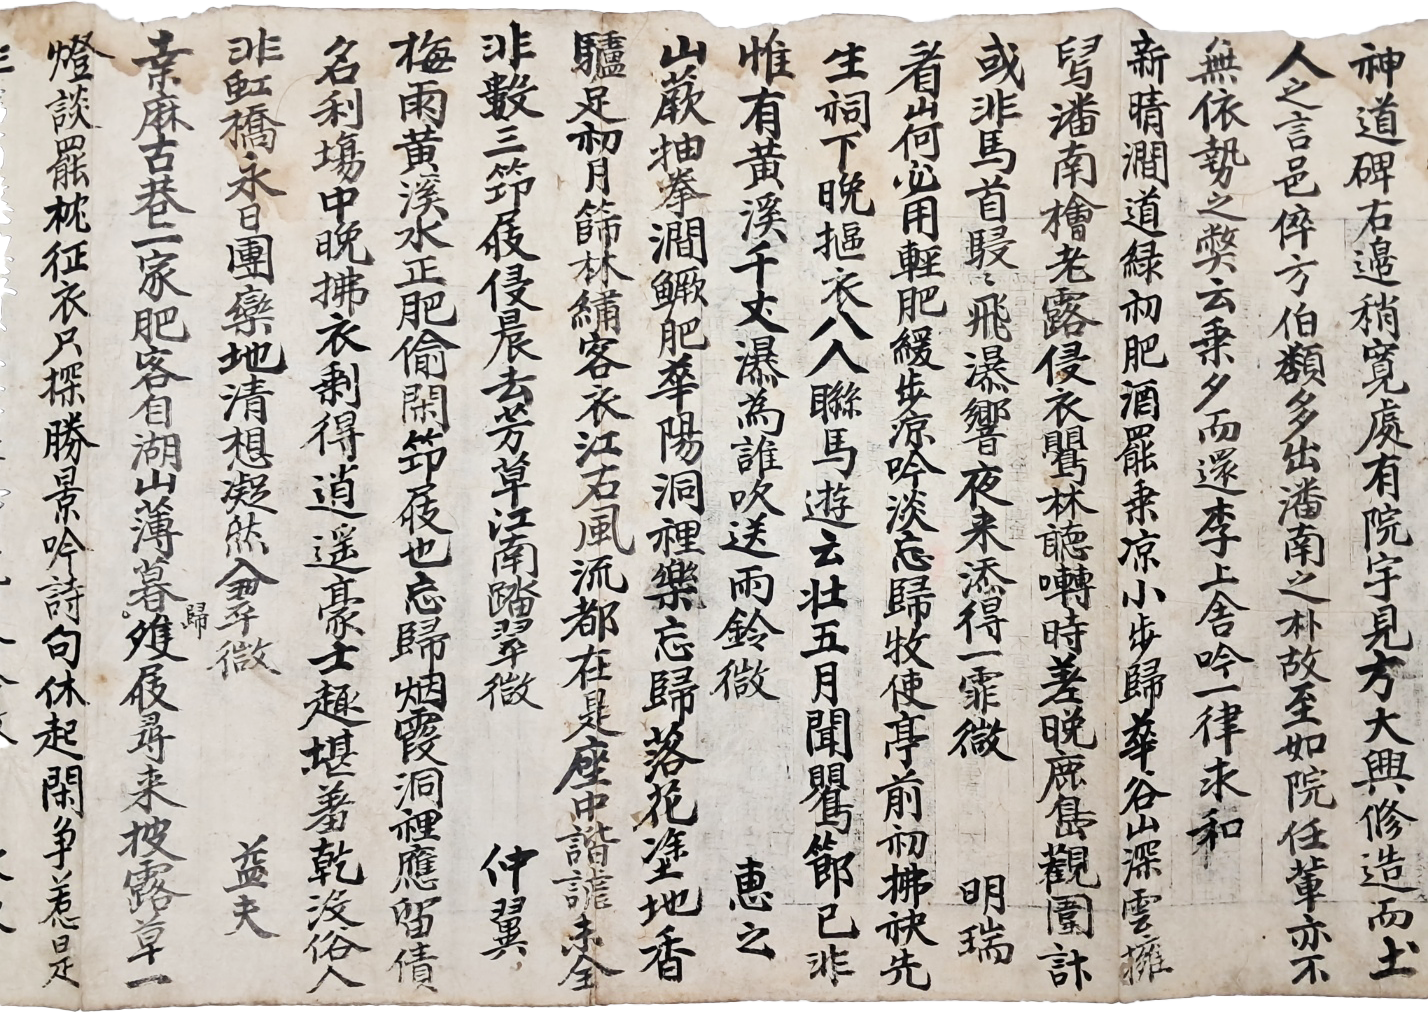 神道碑右邉稍寬處有院宇見方大興修造而土
人之言邑倅方伯類多出潘南之朴故至如院任輩亦不
無依勢之弊云乗夕而還李上舍吟一律求和
新晴澗道緑初肥酒罷乗凉小步歸華谷山深雲擁
舄潘南檜老露侵衣鸎林聽囀時差晚鹿島觀圍計
或非馬首駸〻飛瀑響夜来添得一霏微　明瑞
看山何必用輕肥緩步凉吟淡忘歸牧使亭前初拂袂先
生祠下晚摳衣八八聯馬遊云壮五月聞鸎節已非
惟有黃溪千丈瀑為誰吹送雨鈴微　惠之
山蕨抽拳澗鱖肥華陽洞裡樂忘歸落花塗地香
驢足初月篩林繡客衣江右風流都在是座中諧謔未全
非數三筇屐侵晨去芳草江南踏翠微　仲翼
梅雨黃溪水正肥偷閑筇屐也忘歸烟霞洞裡應留債
名利場中晚拂衣剩得逍遥豪士趣堪羞乾没俗人
非虹橋永日團欒地清想凝然入翠微　益夫
桒麻古巷一家肥客自湖山薄暮歸雙屐尋来披露草一
燈談罷枕征衣只探勝景吟詩句休起閑争惹日疋